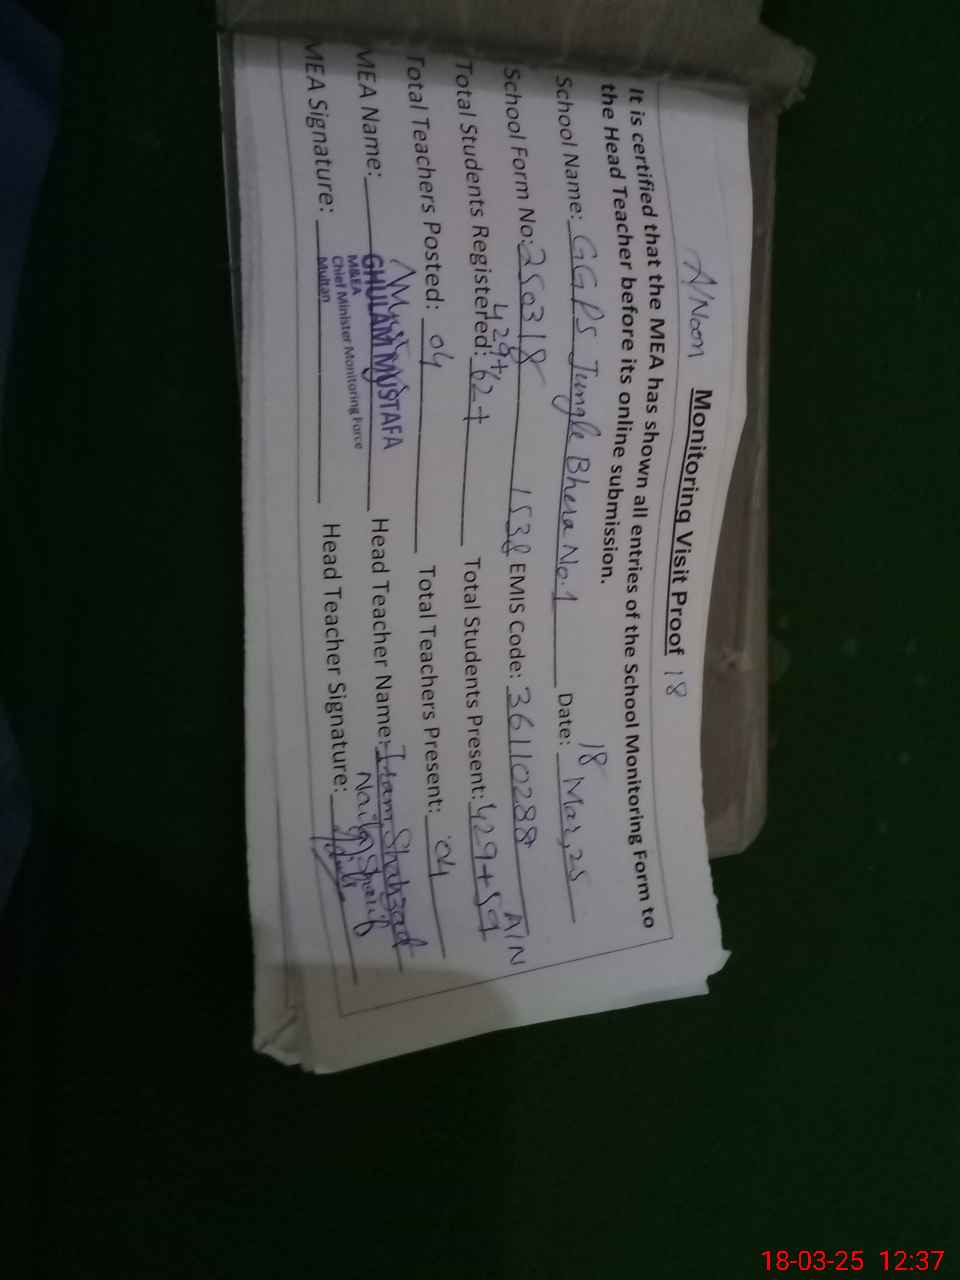 A/Noon
Monitoring Visit Proof 18
It is certified that the MEA has shown all entries of the School Monitoring Form to
the Head Teacher before its online submission.
School Name: GGPS Jungle Bhera No.1 Date: 18 Mar,25
School Form No: 250318 1538 EMIS Code: 36110288
A/N
Total Students Registered: 429+62+ Total Students Present: 429+59
Total Teachers Posted: 04 Total Teachers Present: 04
MEA Name: GHULAM MUSTAFA Head Teacher Name: Iram Shahzad
M&EA
Chief Minister Monitoring Force
Multan
Naila Sharif
MEA Signature: Head Teacher Signature:
18-03-25 12:37